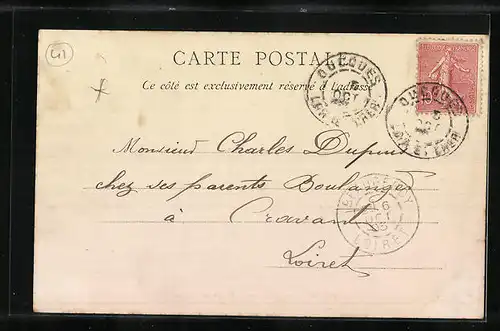 41
CARTE POSTALE
Ce côté est exclusivement réservé à l'adresse
OUCQUES
OCT
LOIR-ET-CHER
OUCQUES
OCT
LOIR-ET-CHER
Monsieur Charles Dupuis
chez ses parents Boulanger
à Cravant
Loiret
6
OCT
LOIRET